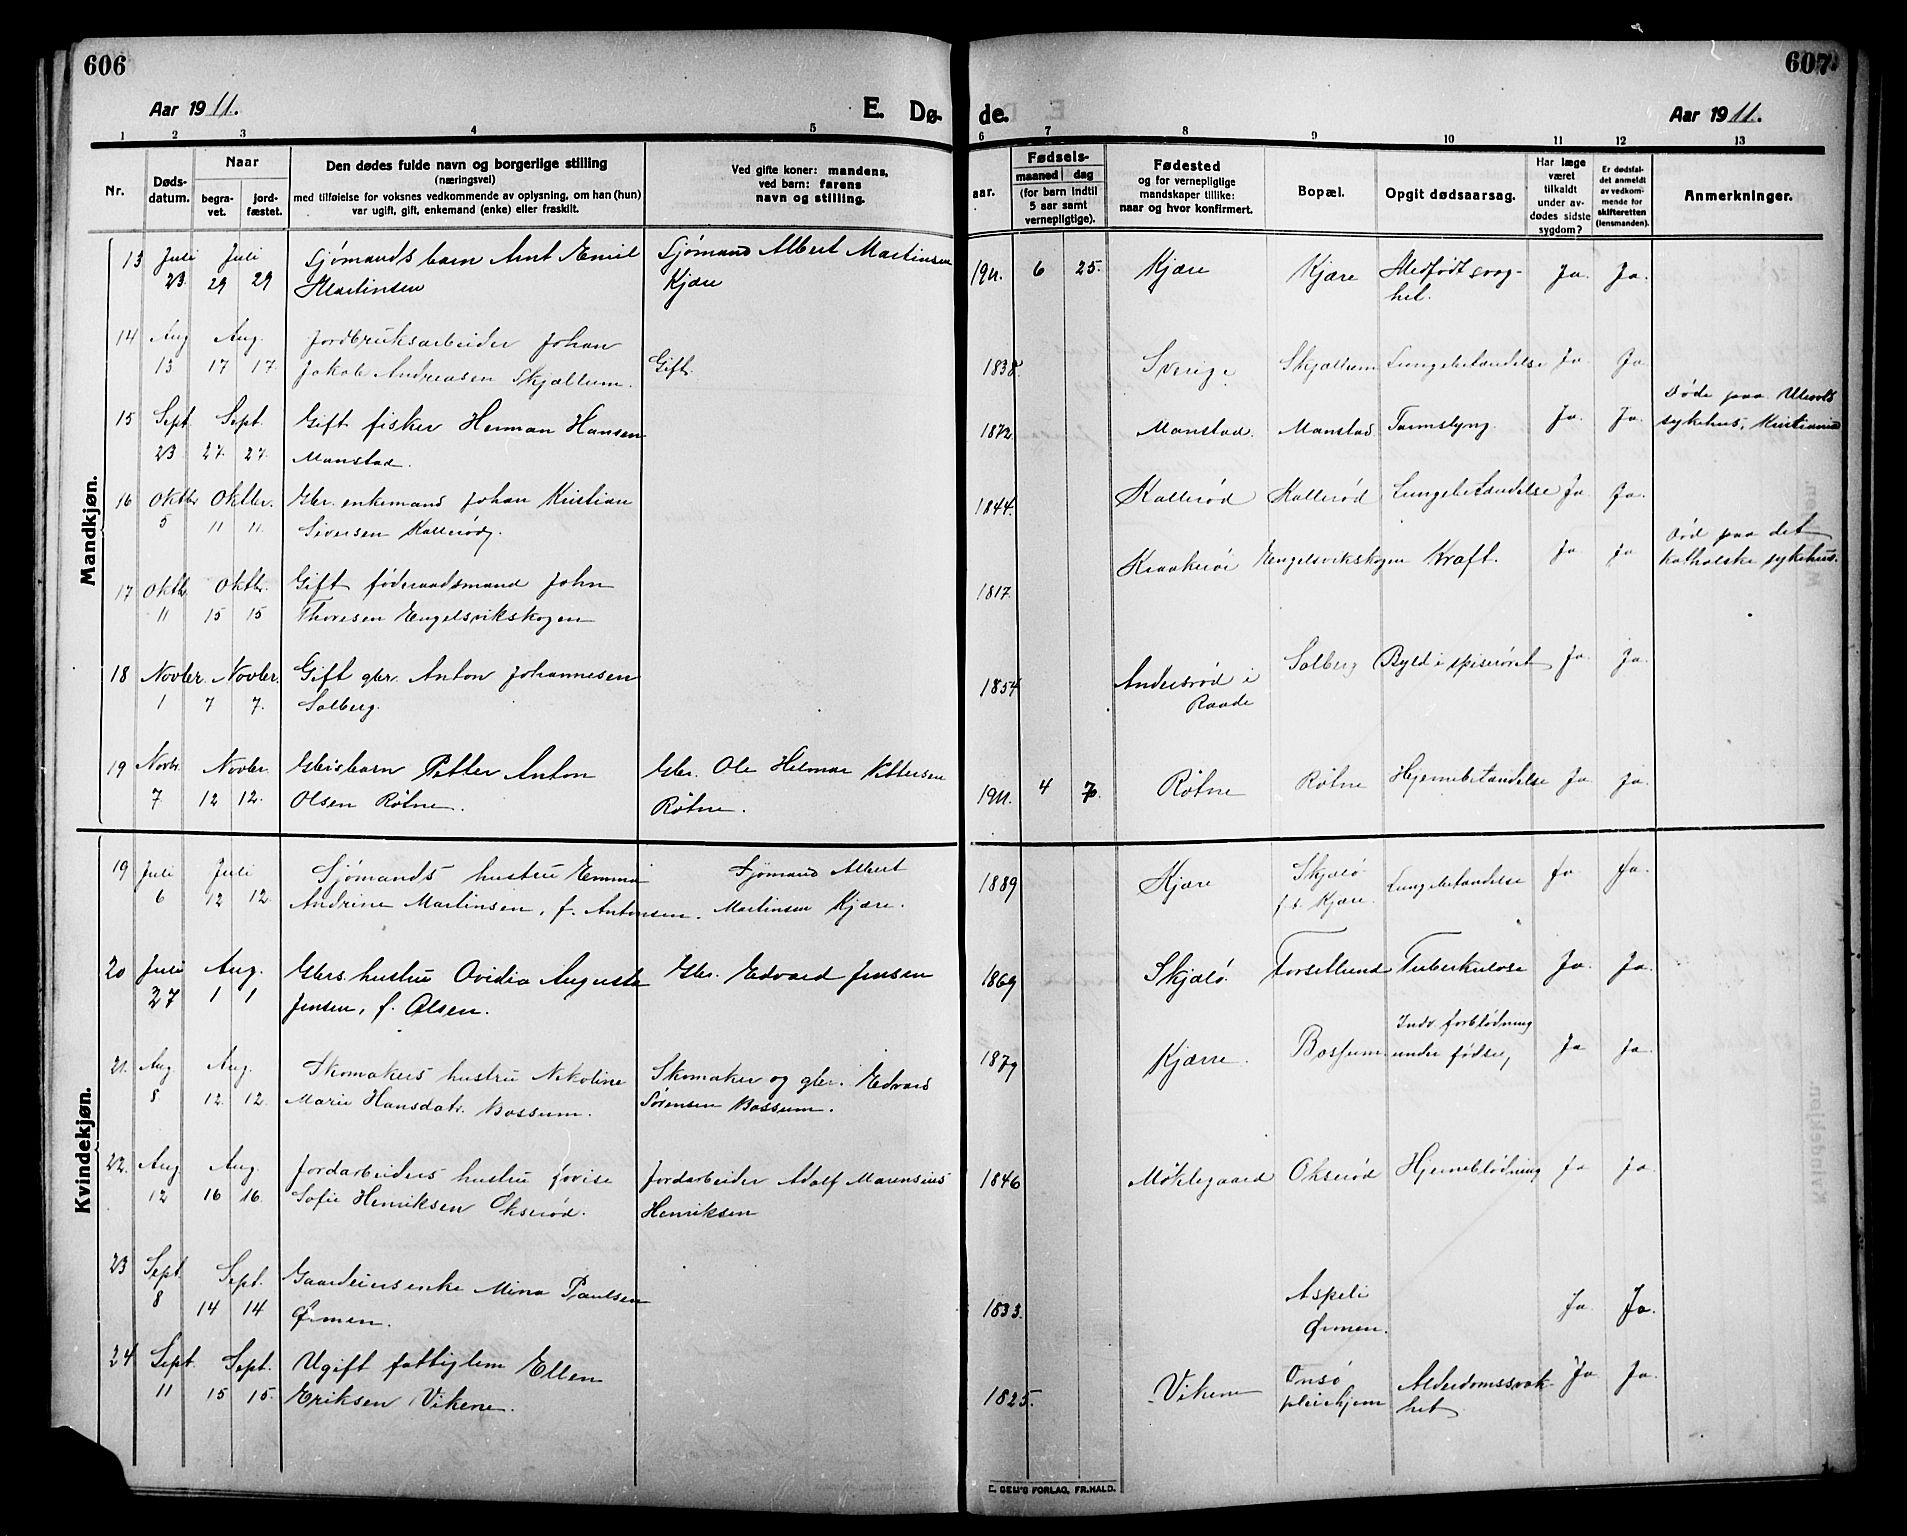 606
607
Aar 1911.
E. Dø-
de.
Aar 1911.
1 2 3 4 5 6 7 8 9 10 11 12 13
Nr.
Døds-
datum.
Naar
begra-
vet.
jord-
fæstet.
Den dødes fulde navn og borgerlige stilling
(næringsvei)
med tilføielse for voksnes vedkommende av oplysning, om han (hun)
var ugift, gift, enkemand (enke) eller fraskilt.
Ved gifte koner: mandens,
ved barn: farens
navn og stilling.
aar.
Fødsels-
maaned dag
(for barn indtil
5 aar samt
vernepligtige).
Fødested
og for vernepligtige
mandskaper tillike:
naar og hvor konfirmert.
Bopæl.
Opgit dødsaarsag.
Har læge
været
tilkaldt
under av-
dødes sidste
sygdom?
Er dødsfal-
det anmeldt
av vedkom-
mende for
skifteretten
(lensmanden).
Anmerkninger.
Mandkjøn.
13 Juli Juli Sjømands barn Arnt Emil Sjømand Albert Martinsen 1911. 6 25. Kjære Kjære Medfødt svag- Ja. Ja.
23 29 29 Martinsen Kjære het.
14 Aug Aug. Jordbruksarbeider Johan 1838. Sverige Skjællum Lungebetændelse Ja Ja
13 17 17. Jakob Andreasen Skjællum. Gift.
15 Sept. Sept. Gift fisker Herman Hansen 1872. Manstad. Manstad Tarmslyng. Ja. Ja. Døde paa Ulevold
23 27. 27. Manstad. sykehus, Kristiania
16 Oktbr Oktbr. Gbr. enkemand Johan Kristian 1844. Kallerød Kallerød Lungebetændelse Ja Ja.
5 11 11. Siversen Kallerød.
17 Oktb. Oktbr. Gift føderaadsmand John 1817. Kraakerøi Engelsvikskogen Kræft. Ja Ja Død paa det
11 15 15 Thoresen Engelsvikskogen katholske sykehus.
18 Novbr. Novbr. Gift gbr. Anton Johannesen 1854 Andersrød i Solberg Byld i spiserøret Ja. Ja.
1 7 7. Solberg. Raade
19 Novbr. Novbr. Gbrs barn Petter Anton Gbr. Ole Hilmar Pettersen 1911. 4 7. Røtne Røtne Hjernebetændelse Ja Ja.
7 12 12. Olsen Røtne. Røtne.
Kvindekjøn.
19 Juli Juli Sjømands hustru Emma Sjømand Albert 1889 Kjære Skjælø Lungebetændelse Ja Ja.
6 12 12. Andrine Martinsen, f. Antonsen. Martinsen Kjære. f. t. Kjære.
20 Juli Aug. Gbrs. hustru Ovidia Augusta Gbr. Edvard Jensen 1869 Skjælø. Torsetlund Tuberkulose Ja. Ja.
27 1 1 Jensen, f. Olsen.
21. Aug Aug. Skomakers hustru Nikoline Skomaker og gbr. Edvard 1879 Kjærre. Bossum Indv forblødning Ja Ja.
8 12 12. Marie Hansdatr. Bossum. Sørensen Bossum. under fødsel,
22. Aug Aug. Jordarbeiders hustru Lovise Jordarbeider Adolf Marensius 1846 Møklegaard Okserød Hjerneblødning Ja Ja.
12 16 16. Sofie Henriksen Okserød. Henriksen
23 Sept. Sept. Gaardeiers enke Mina Paulsen 1833. Aspeli Ja Ja.
8 14 14 Ørmen. Ørmen.
24 Sept. Sept. Ugift fattiglem Ellen 1825. Vikene Onsø Alderdomssvak- Ja. Ja.
11 15 15. Eriksen Vikene. pleiehjem het
E. SEM'S FORLAG, FR.HALD.